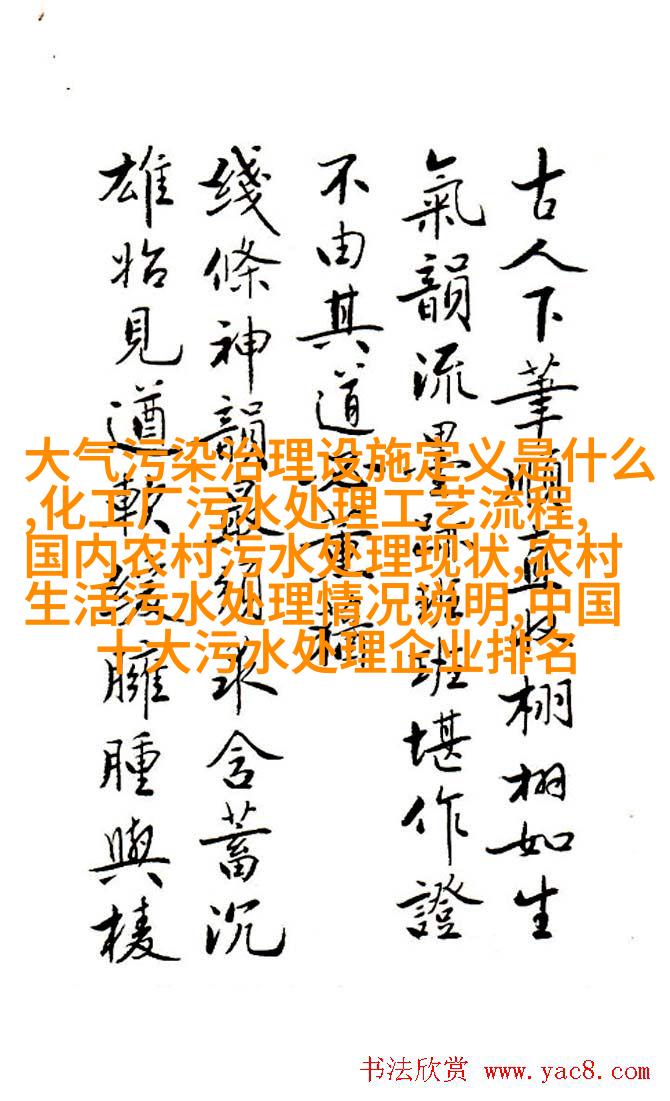 古人下筆順直收栩栩如生
氣韻流墨跡斑斑堪作證
不由其道
綫條神韻最須求含蓄沉
雄始見遒軟緩臃腫與棱
大气污染治理设施定义是什么
,化工厂污水处理工艺流程,
国内农村污水处理现状,农村
生活污水处理情况说明,中国
十大污水处理企业排名
书法欣赏 www.yac8.com